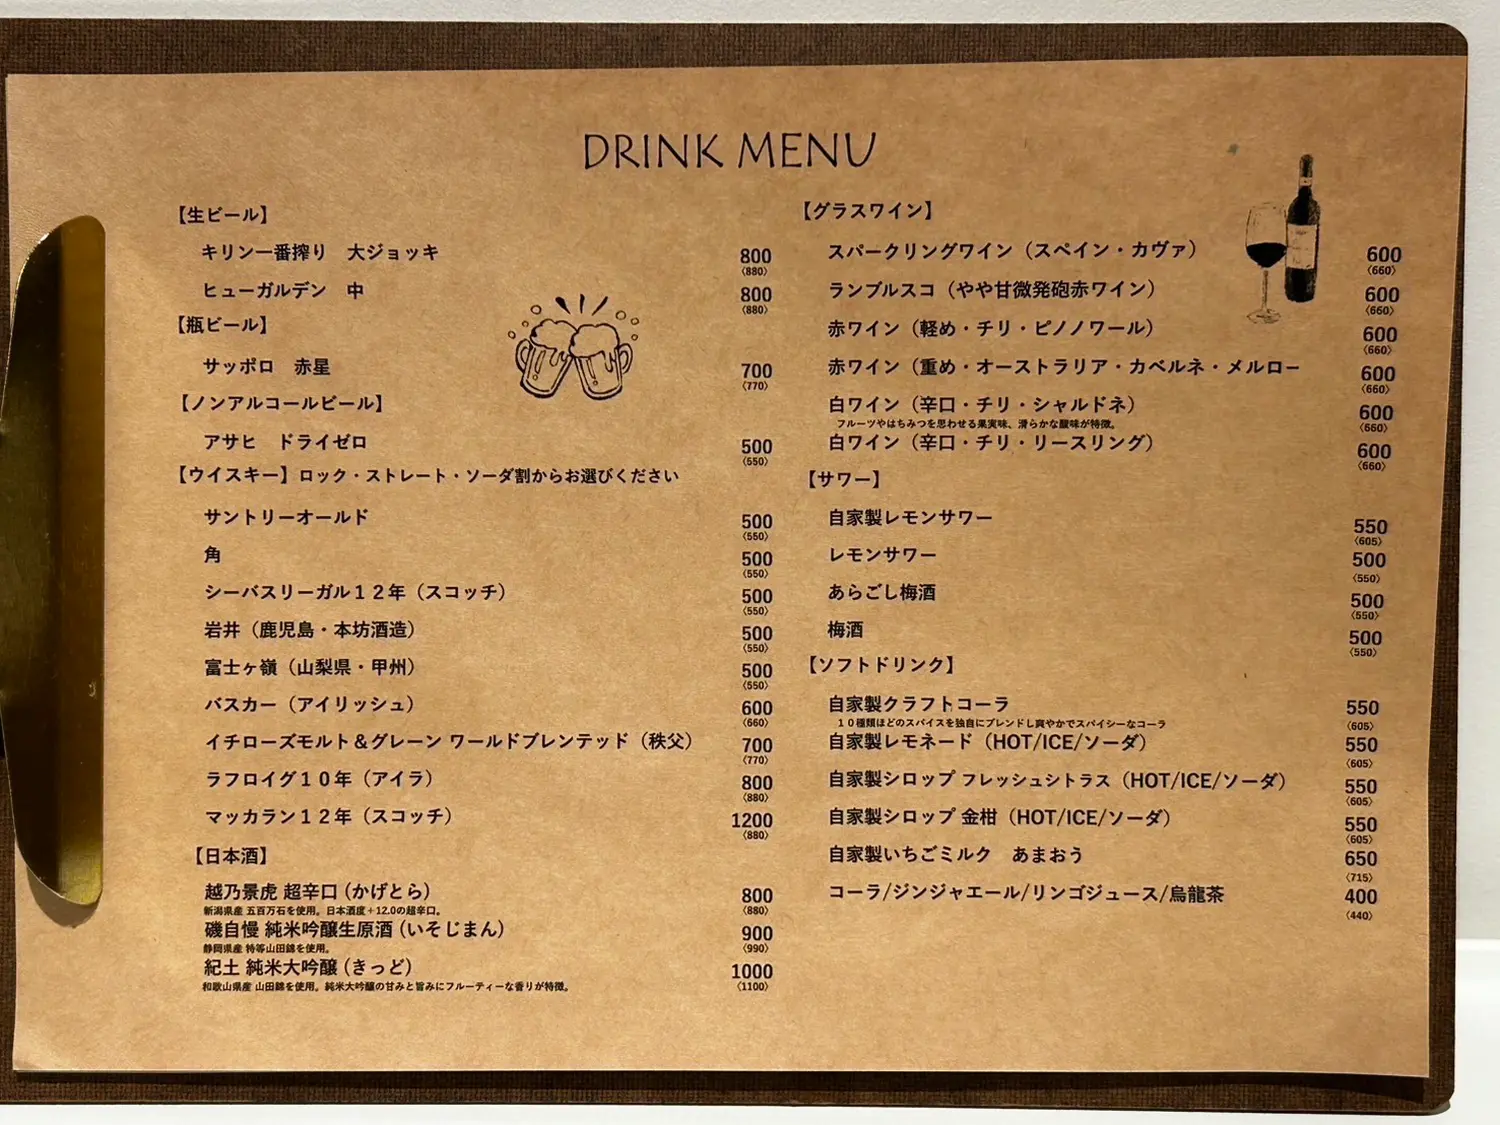 DRINK MENU
【生ビール】
キリン一番搾り　大ジョッキ 800
〈880〉
ヒューガルデン　中 800
〈880〉
【瓶ビール】
サッポロ　赤星 700
〈770〉
【ノンアルコールビール】
アサヒ　ドライゼロ 500
〈550〉
【ウイスキー】ロック・ストレート・ソーダ割からお選びください
サントリーオールド 500
〈550〉
角 500
〈550〉
シーバスリーガル１２年（スコッチ） 500
〈550〉
岩井（鹿児島・本坊酒造） 500
〈550〉
富士ヶ嶺（山梨県・甲州） 500
〈550〉
バスカー（アイリッシュ） 600
〈660〉
イチローズモルト＆グレーン ワールドブレンテッド（秩父） 700
〈770〉
ラフロイグ１０年（アイラ） 800
〈880〉
マッカラン１２年（スコッチ） 1200
〈880〉
【日本酒】
越乃景虎 超辛口（かげとら） 800
新潟県産 五百万石を使用。日本酒度＋12.0の超辛口。 〈880〉
磯自慢 純米吟醸生原酒（いそじまん） 900
静岡県産 特等山田錦を使用。 〈990〉
紀土 純米大吟醸（きっど） 1000
和歌山県産 山田錦を使用。純米大吟醸の甘みと旨みにフルーティーな香りが特徴。 〈1100〉
【グラスワイン】
スパークリングワイン（スペイン・カヴァ） 600
〈660〉
ランブルスコ（やや甘微発砲赤ワイン） 600
〈660〉
赤ワイン（軽め・チリ・ピノノワール） 600
〈660〉
赤ワイン（重め・オーストラリア・カベルネ・メルロー 600
〈660〉
白ワイン（辛口・チリ・シャルドネ） 600
フルーツやはちみつを思わせる果実味、滑らかな酸味が特徴。 〈660〉
白ワイン（辛口・チリ・リースリング） 600
〈660〉
【サワー】
自家製レモンサワー 550
〈605〉
レモンサワー 500
〈550〉
あらごし梅酒 500
〈550〉
梅酒 500
〈550〉
【ソフトドリンク】
自家製クラフトコーラ 550
１０種類ほどのスパイスを独自にブレンドし爽やかでスパイシーなコーラ 〈605〉
自家製レモネード（HOT/ICE/ソーダ） 550
〈605〉
自家製シロップ フレッシュシトラス（HOT/ICE/ソーダ） 550
〈605〉
自家製シロップ 金柑（HOT/ICE/ソーダ） 550
〈605〉
自家製いちごミルク　あまおう 650
〈715〉
コーラ/ジンジャエール/リンゴジュース/烏龍茶 400
〈440〉